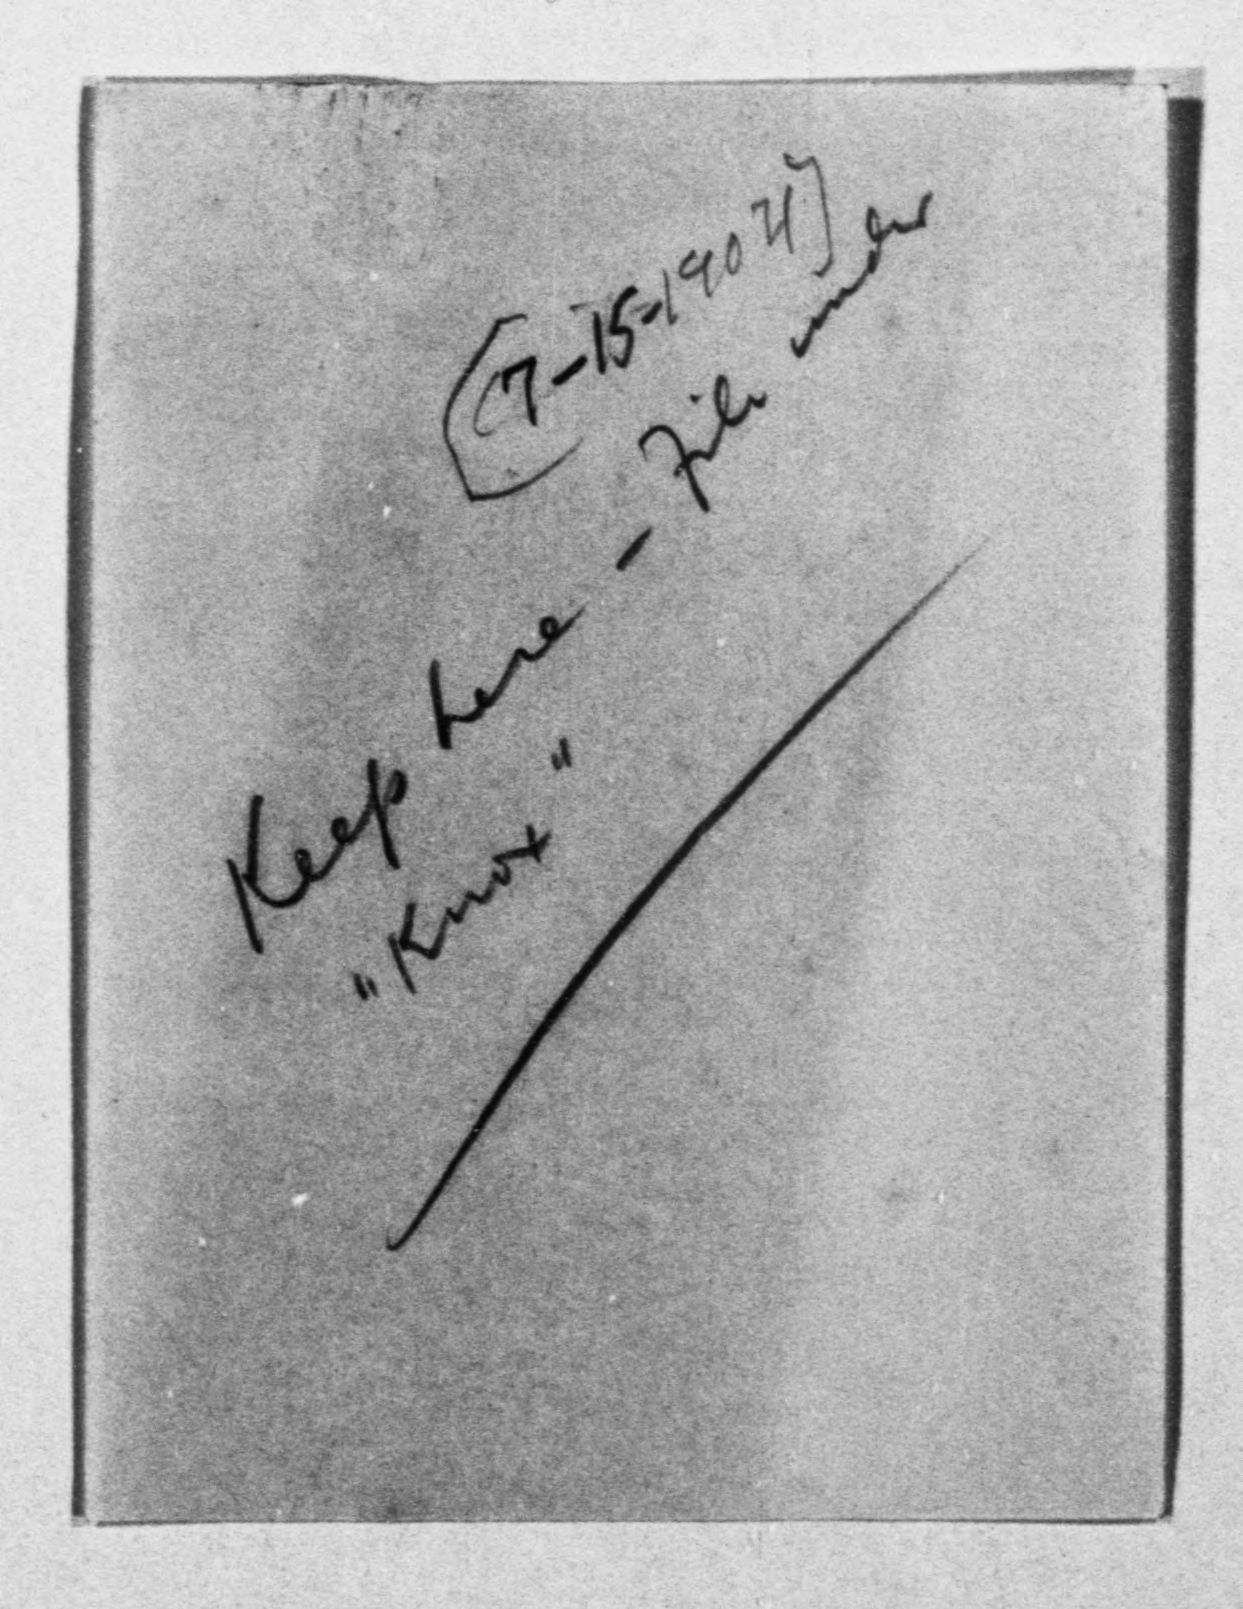 [7-15-1904]
Keep here - File under
"Knox"